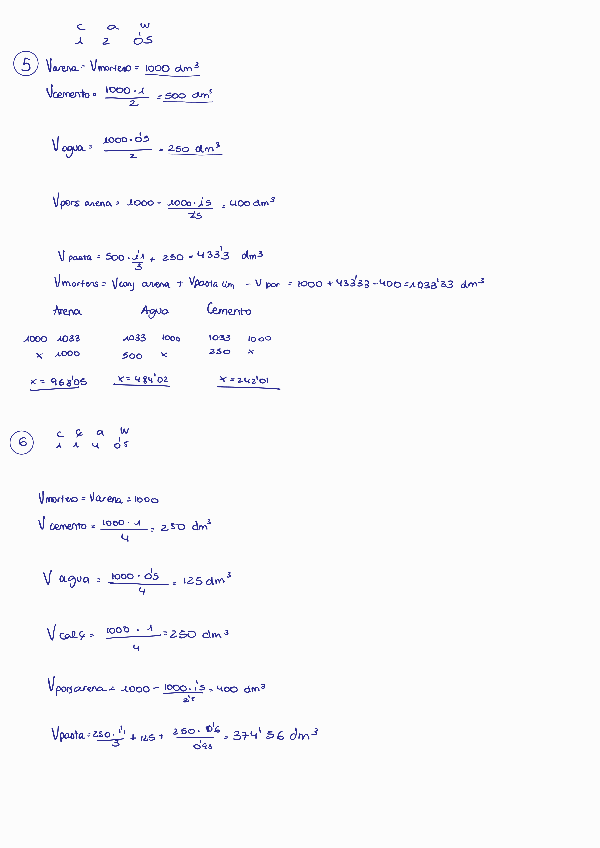 c a w
1 2 0'5
5 Varena = Vmortero = 1000 dm³
Vcemento = 1000·1 / 2 = 500 dm³
Vagua = 1000·0'5 / 2 = 250 dm³
Vpors arena = 1000 - 1000·1'5 / 2'5 = 400 dm³
Vpasta = 500·1'1 / 3 + 250 = 433'3 dm³
Vmorters = Vconj arena + Vpasta cim - Vpor = 1000 + 433'33 - 400 = 1033'33 dm³
Arena Agua Cemento
1000 1033 1033 1000 1033 1000
x 1000 500 x 250 x
x = 968'05 x = 484'02 x = 242'01
6 c ç a w
1 1 4 0'5
Vmortero = Varena = 1000
Vcemento = 1000·1 / 4 = 250 dm³
Vagua = 1000·0'5 / 4 = 125 dm³
Vcalç = 1000·1 / 4 = 250 dm³
Vpors arena = 1000 - 1000·1'5 / 2'5 = 400 dm³
Vpasta = 250·1'1 / 3 + 125 + 250·0'6 / 0'95 = 374'56 dm³